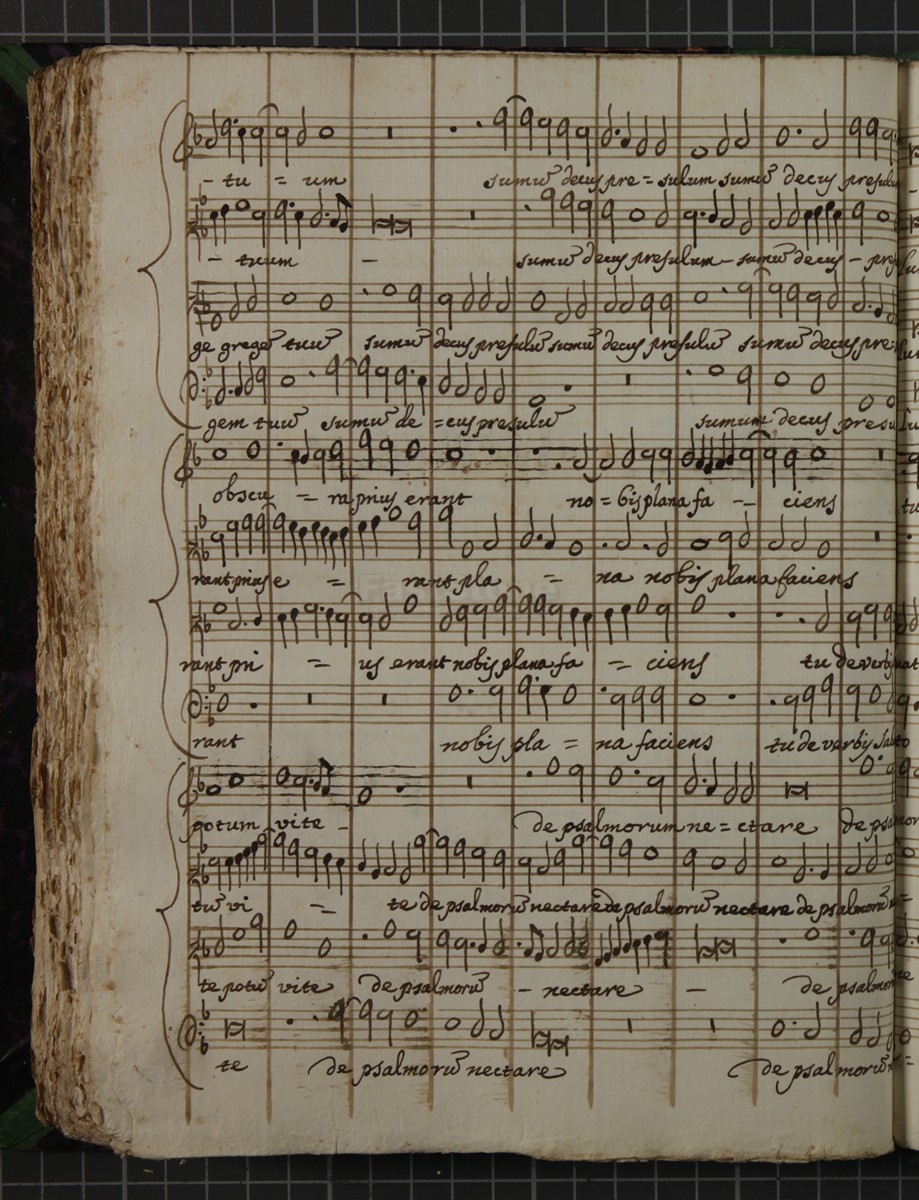 - tu = um sumū decus pre = sulum sumū decus presulu
- tuum - sumū decus presulum - sumū decus - pres
ge gregē tuū sumū decus presulū sumū decus presulū sumū decus pre
gem tuū sumū de = cus presulū sumum decus presu
obscu = ra prius erant no = bis plana fa - ciens tu
rant prius e = rant pla = na nobis plana faciens
rant pri = us erant nobis plana fa = ciens tu de verbi
rant nobis pla = na faciens tu de verbis
potum vite - de psalmorum ne = ctare de psal
tū vi = te de psalmorū nectare de psalmorū nectare de psalmorū
te potū vite de psalmorū - nectare - de psalmor
te de psalmorū nectare de psalmorū